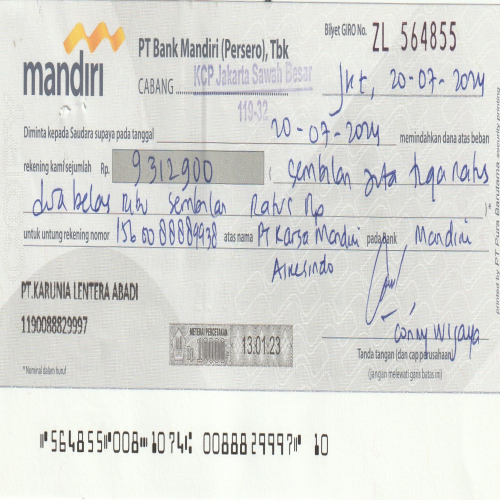 mandiri
PT Bank Mandiri (Persero), Tbk
Bilyet GIRO No. ZL 564855
CABANG KCP Jakarta Sawah Besar
119-32
Jkt, 20-07-2024
Diminta kepada Saudara supaya pada tanggal 20-07-2024 memindahkan dana atas beban
rekening kami sejumlah Rp. 9312900 ( Sembilan juta tiga ratus
dua belas ribu sembilan ratus Rp )*
untuk untung rekening nomor atas nama PT Karsa Mandiri pada bank Mandiri
PT.KARUNIA LENTERA ABADI
1190088829997
METERAI PERCETAKAN
13.01.23
Conny Wijaya
Tanda tangan (dan cap perusahaan)
(jangan melewati garis batas ini)
*Nominal dalam huruf
printed by PT Pura Barutama security printing
564855 008 1074 0088829997 10